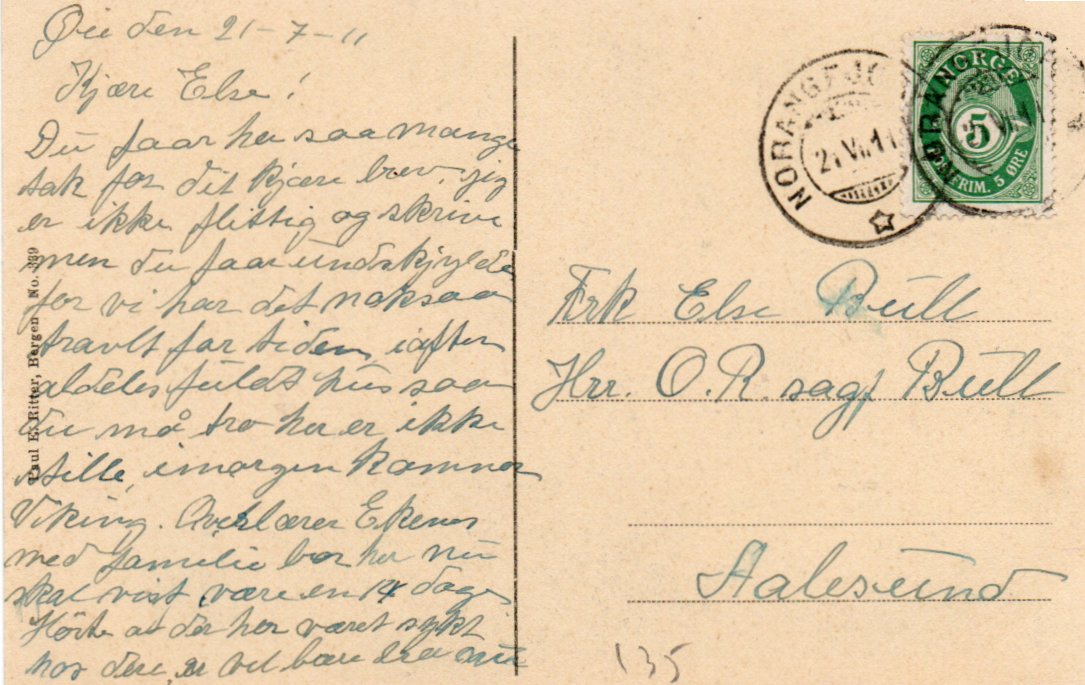 Øie den 21-7-11
Kjære Else!
Du faar ha saa mange
tak for dit kjære brev, jeg
er ikke flittig og skrive
men du faar undskylde
for vi har det noksaa
travlt for tiden, iaften
aldeles fuldt hus saa
du må tro her er ikke
stille, imorgen kommer
Viking. Overlærer Ekenes
med familie bor her nu
skal vist være en 14 dage
Hørte at der har været sykt
hos dere, er vel bare bra nu
Paul E. Ritter, Bergen No. 339
NORANGFJO
21 VII 11
NORGE
5
FRIM. 5 ØRE
Frk Else Bull
Hrr. O. R. sagf Bull
Aalesund
135